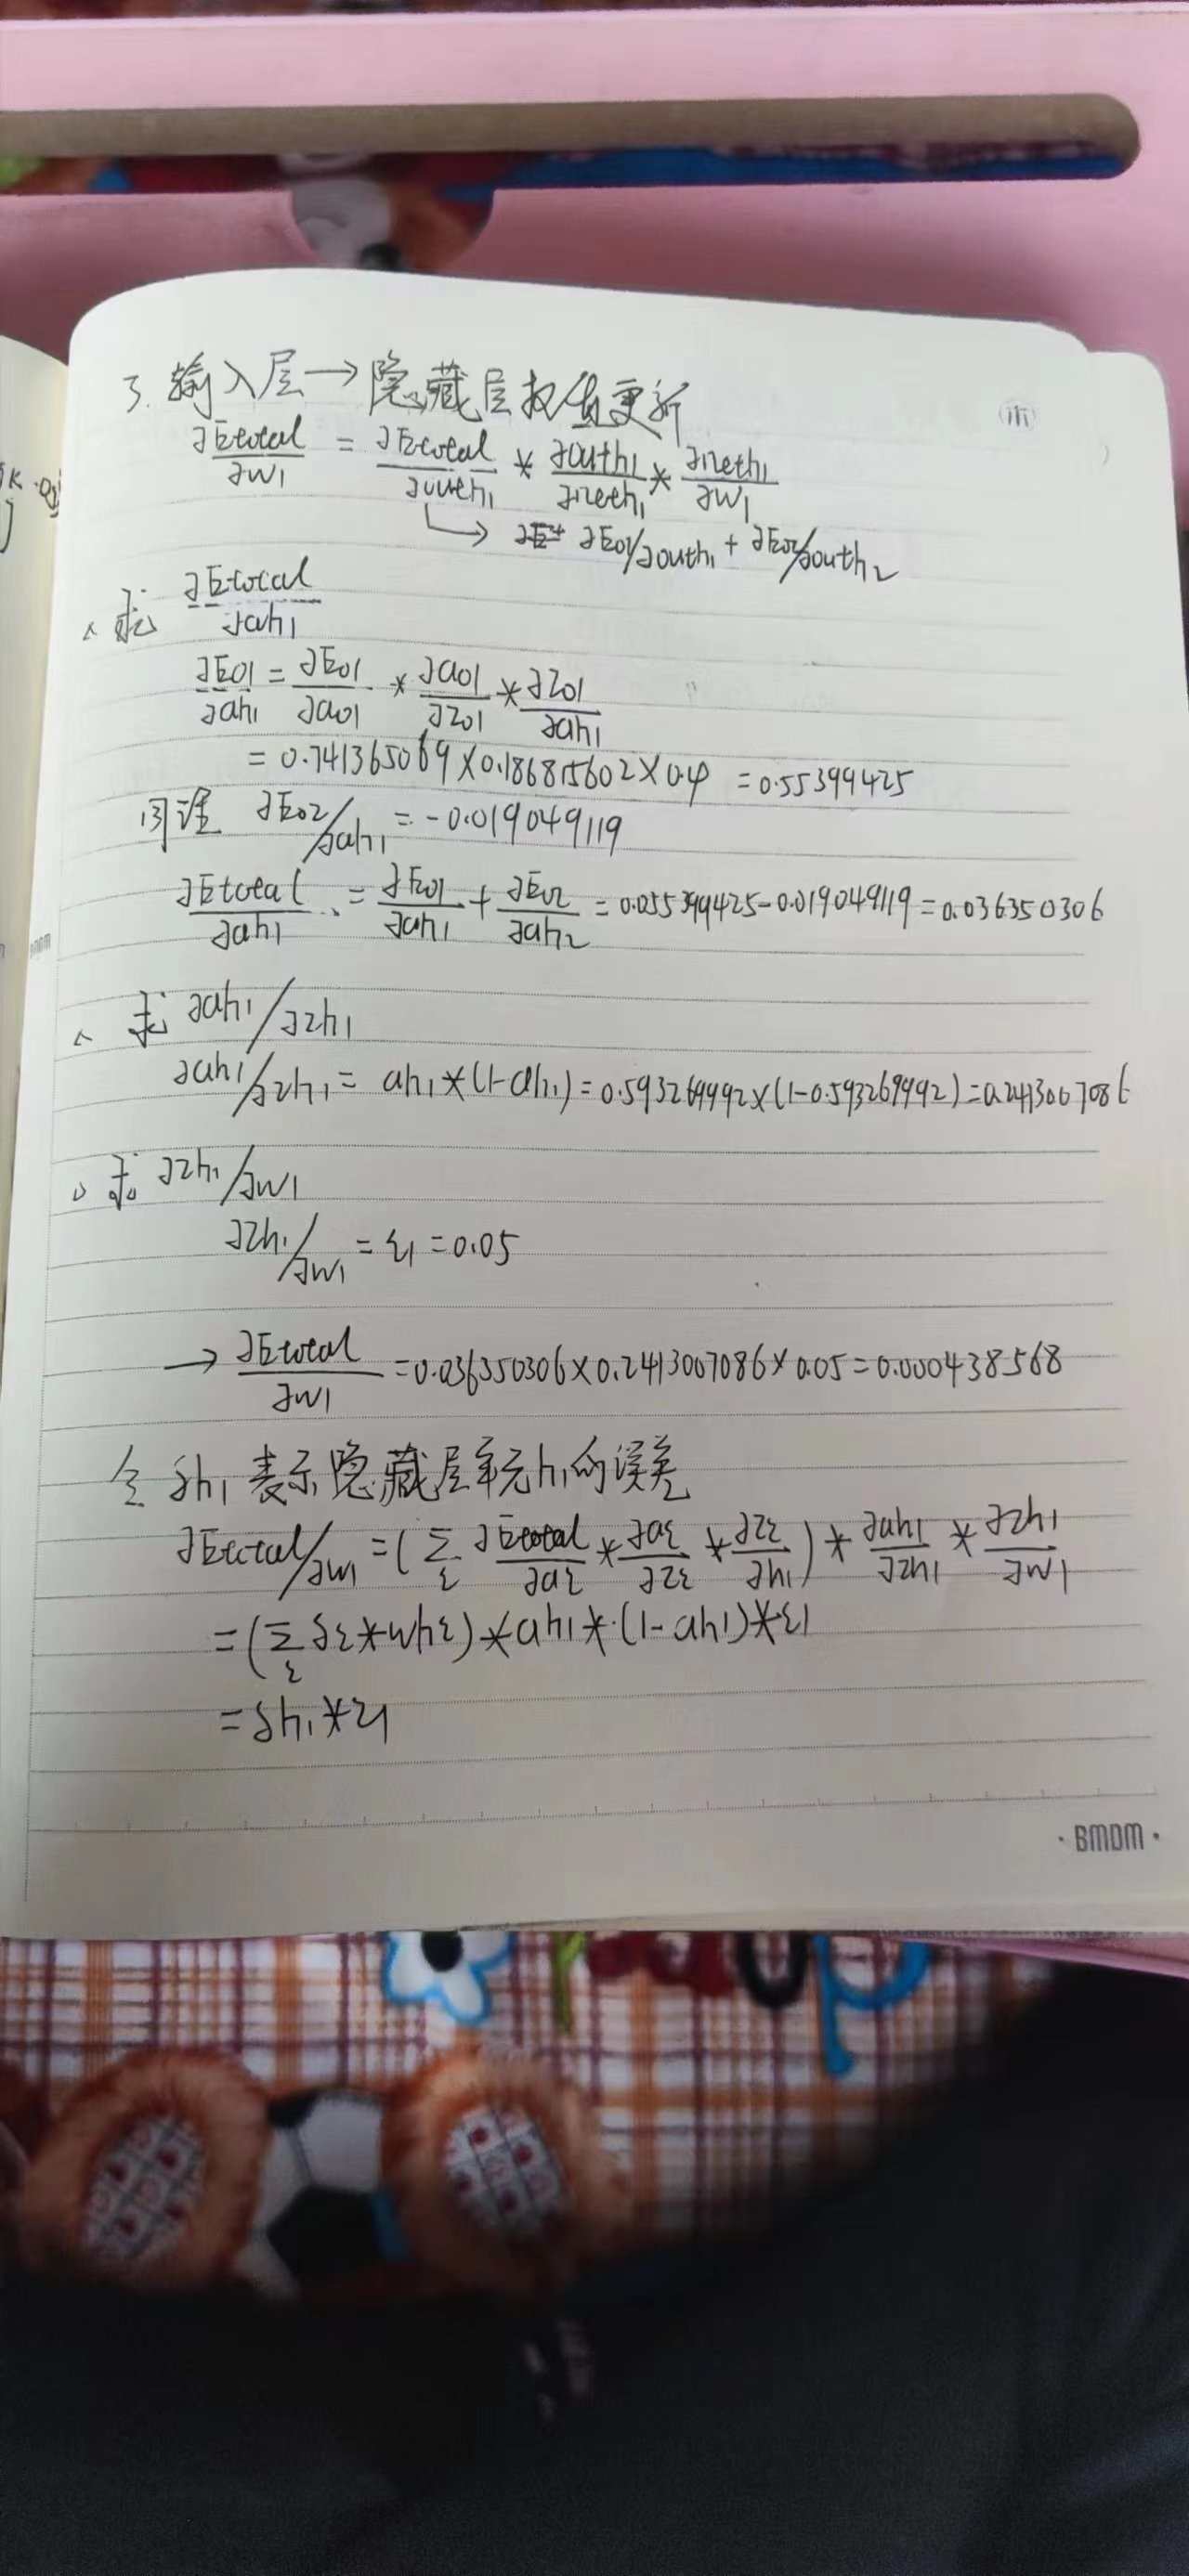 3. 输入层→隐藏层权值更新
∂Etotal/∂w1 = ∂Etotal/∂outh1 * ∂outh1/∂neth1 * ∂neth1/∂w1
→ ∂Eo1/∂outh1 + ∂Eo2/∂outh2
求 ∂Etotal/∂ah1
∂Eo1/∂ah1 = ∂Eo1/∂ao1 * ∂ao1/∂zo1 * ∂zo1/∂ah1
= 0.741365069×0.186815602×0.4 = 0.55399425
同理 ∂Eo2/∂ah1 = -0.019049119
∂Etotal/∂ah1 = ∂Eo1/∂ah1 + ∂Eo2/∂ah2 = 0.055399425-0.019049119=0.036350306
求 ∂ah1/∂zh1
∂ah1/∂zh1 = ah1*(1-ah1)=0.593269992×(1-0.593269992)=0.2413007086
求 ∂zh1/∂w1
∂zh1/∂w1 = i1 = 0.05
→ ∂Etotal/∂w1 = 0.036350306×0.2413007086×0.05=0.000438568
令 δh1 表示隐藏层单元h1的误差
∂Etotal/∂w1 = (∑i ∂Etotal/∂ai * ∂ai/∂zi * ∂zi/∂h1) * ∂ah1/∂zh1 * ∂zh1/∂w1
= (∑i δi*whi)*ah1*(1-ah1)*i1
= δh1*i1
·BMDM·